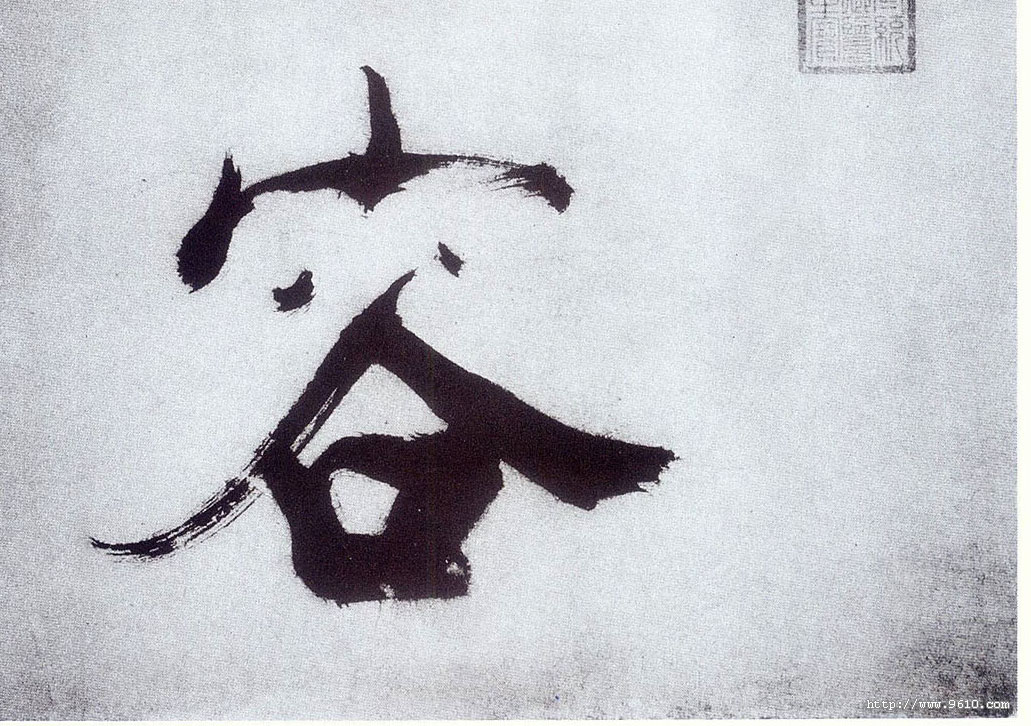 容
http://www.9610.com